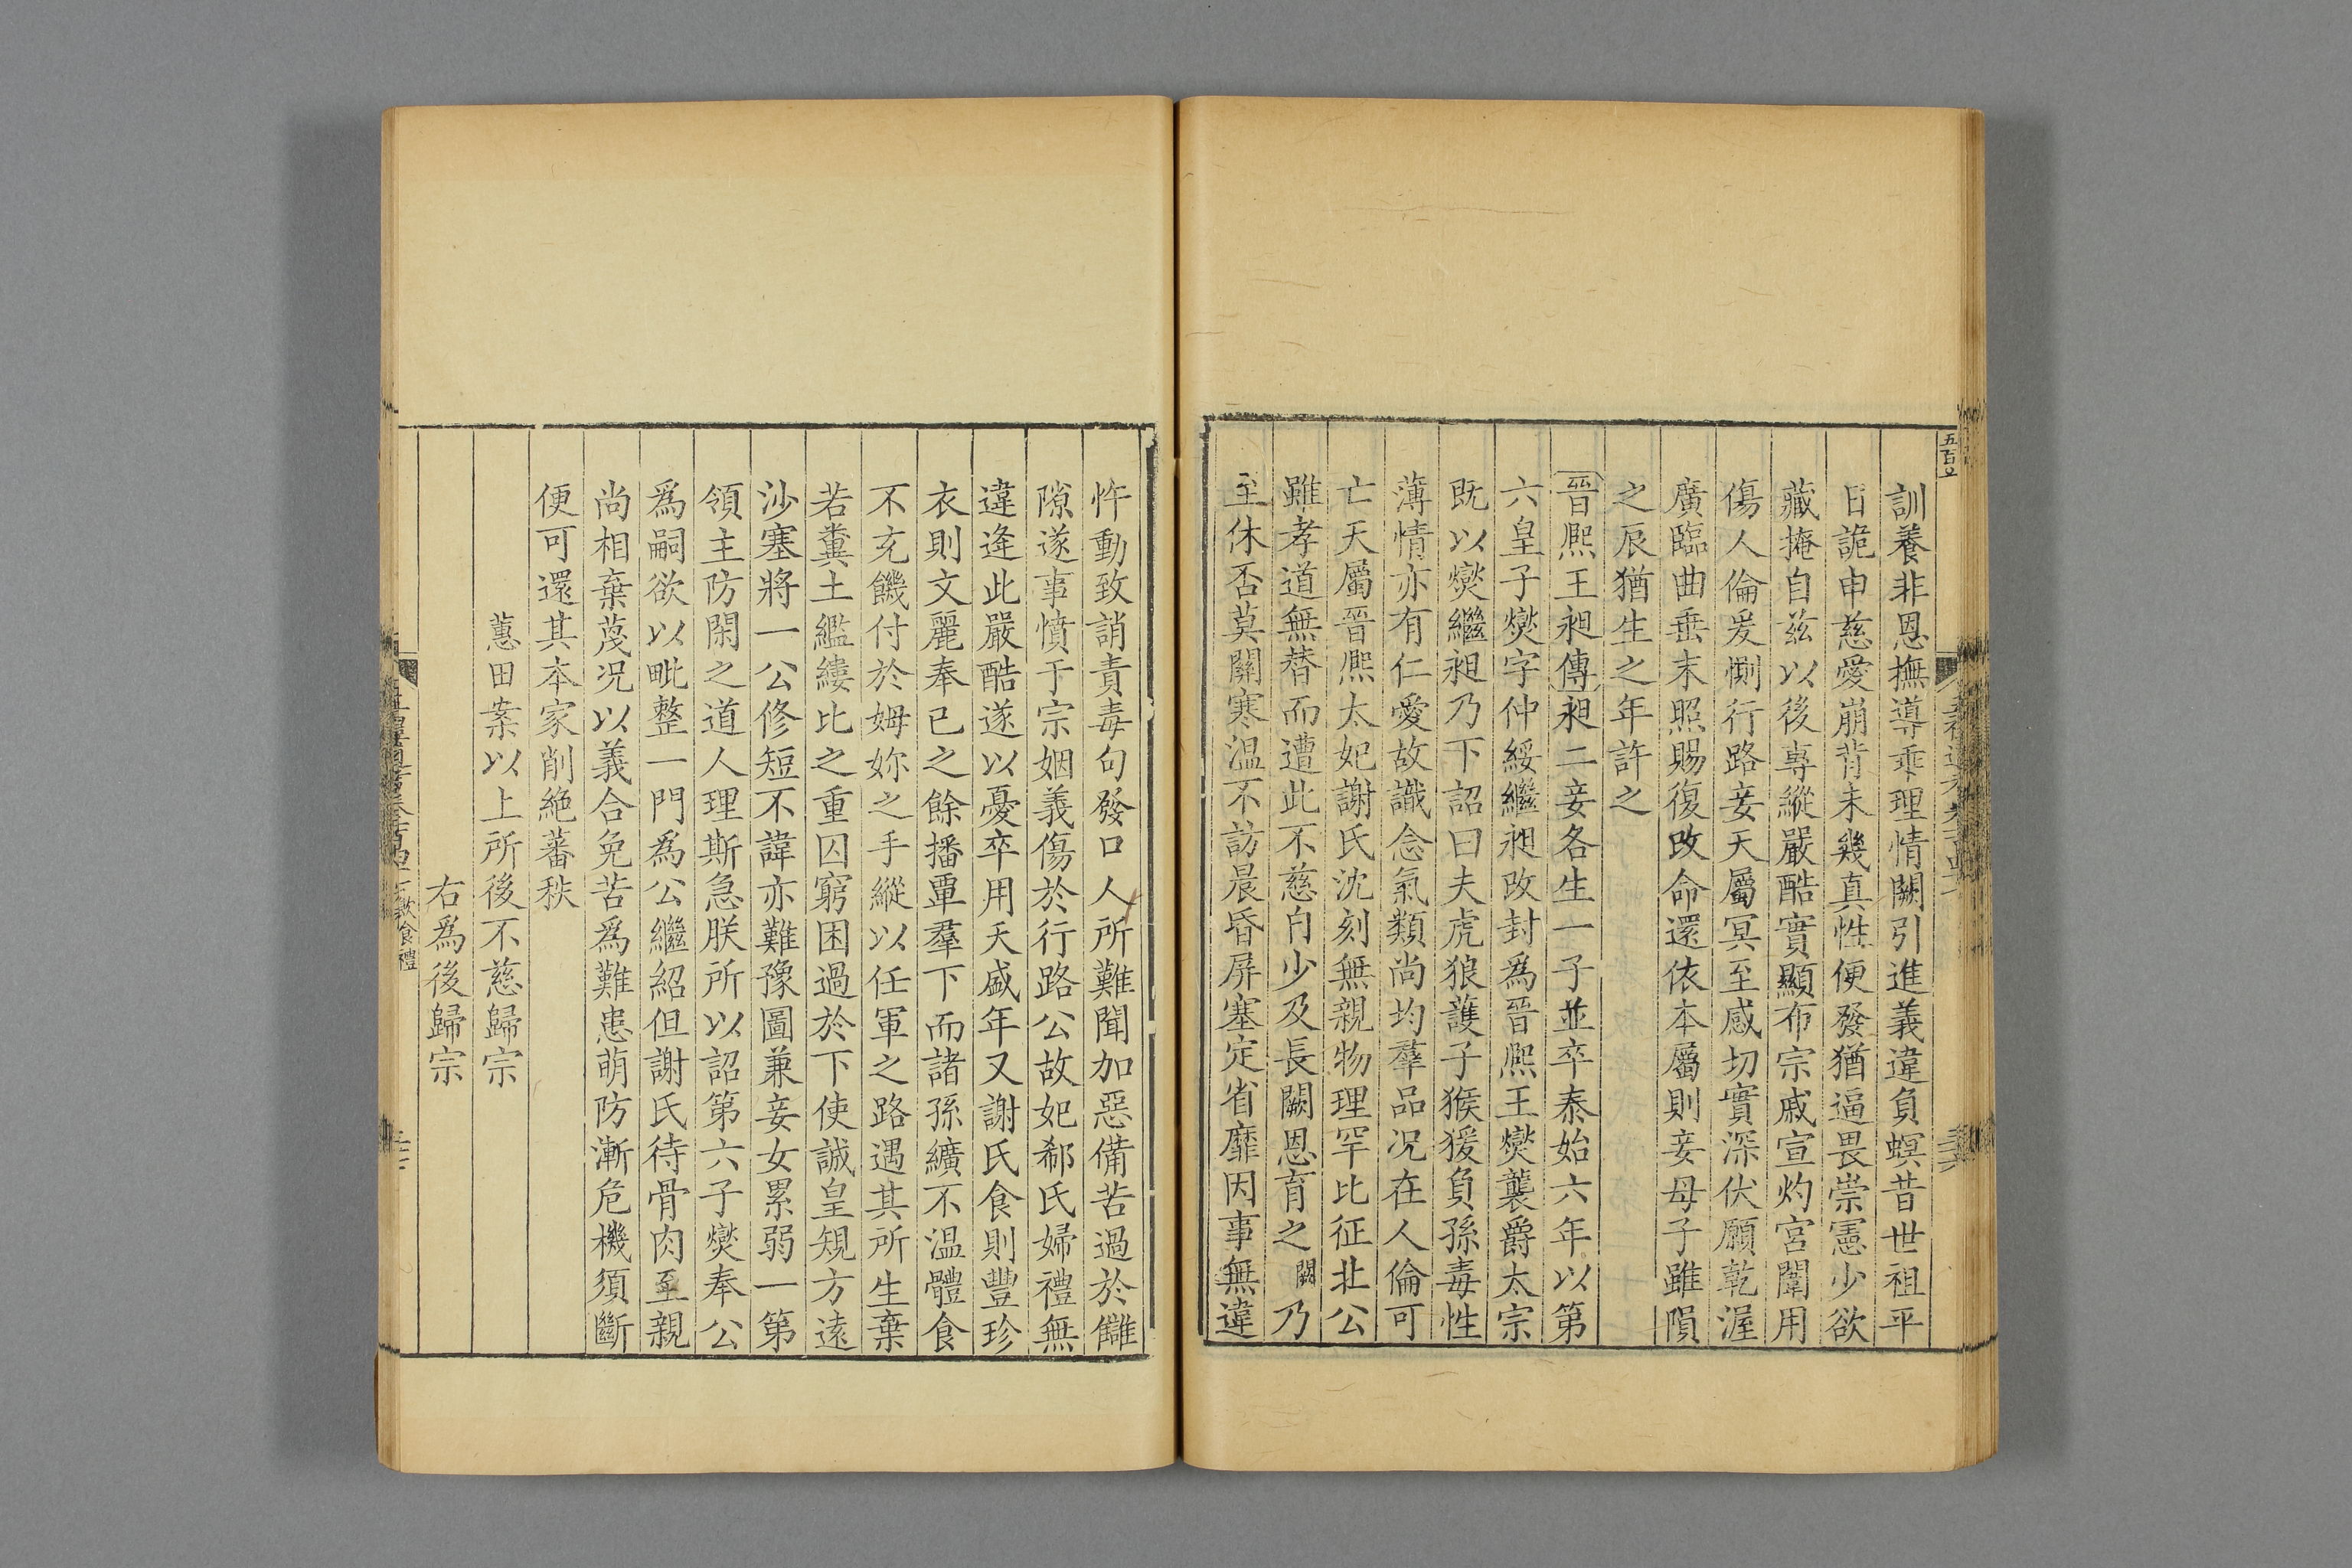 訓養非恩撫導乖理情闕引進義違負螟昔世祖平
日詭申慈愛崩背未幾真性便發猶逼畏崇憲少欲
藏掩自兹以後專縱嚴酷實顯布宗戚宣灼宮闈用
傷人倫爰惻行路妾天屬冥至感切實深伏願乾渥
廣臨曲垂末照賜復改命還依本屬則妾母子雖隕
之辰猶生之年許之
晉熙王昶傳昶二妾各生一子並卒泰始六年以第
六皇子燮字仲綏繼昶改封爲晉熙王燮襲爵太宗
既以燮繼昶乃下詔曰夫虎狼護子猴猨負孫毒性
薄情亦有仁愛故識念氣類尚均羣品况在人倫可
亡天屬晉熙太妃謝氏沈刻無親物理罕比征北公
雖孝道無替而遭此不慈自少及長闕恩育之闕乃
至休否莫關寒溫不訪晨昏屏塞定省靡因事無違
忤動致誚責毒句發口人所難聞加惡備苦過於讎
隙遂事憤于宗姻義傷於行路公故妃郗氏婦禮無
違逢此嚴酷遂以憂卒用夭盛年又謝氏食則豐珍
衣則文麗奉已之餘播覃羣下而諸孫纊不溫體食
不充饑付於姆妳之手縱以任軍之路遇其所生棄
若糞土繿縷比之重囚窮困過於下使誠皇規方遠
沙塞將一公修短不諱亦難豫圖兼妾女累弱一第
領主防閑之道人理斯急朕所以詔第六子燮奉公
爲嗣欲以毗整一門爲公繼紹但謝氏待骨肉至親
尚相棄蔑况以義合免苦爲難患萌防漸危機須斷
便可還其本家削絶蕃秩
蕙田案以上所後不慈歸宗
右爲後歸宗